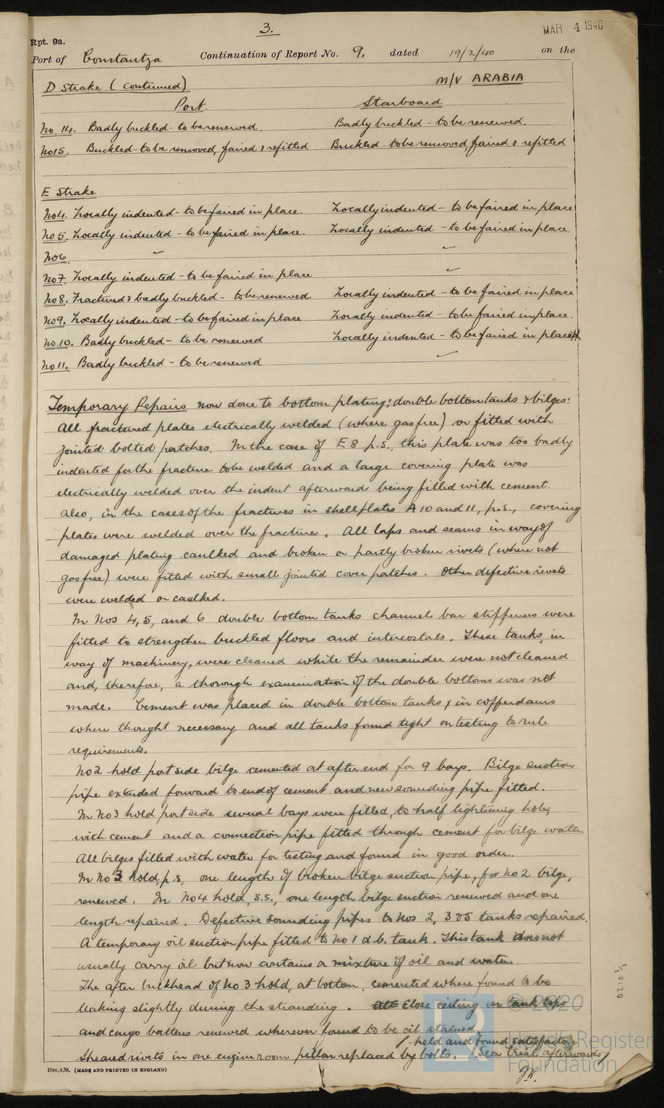 3.
MAR 4 1940
Rpt. 9a.
Port of Constantza Continuation of Report No. 9. dated 19/2/40 on the
D Strake (continued) M/V ARABIA
Port. Starboard
No. 14. Badly buckled - to be renewed. Badly buckled - to be renewed.
No 15. Buckled - to be removed, faired & refitted Buckled - to be removed, faired & refitted
E Strake
No 4. Locally indented - to be faired in place. Locally indented - to be faired in place
No 5. Locally indented - to be faired in place. Locally indented - to be faired in place
No 6. ✓ ✓
No 7. Locally indented - to be faired in place ✓
No 8. Fractured & badly buckled - to be renewed Locally indented - to be faired in place
No 9. Locally indented - to be faired in place Locally indented - to be faired in place.
No. 10. Badly buckled - to be renewed Locally indented - to be faired in place
No 11. Badly buckled - to be renewed ✓
Temporary Repairs now done to bottom plating; double bottom tanks & bilges:
All fractured plates electrically welded (where gas free) or fitted with
jointed bolted patches. In the case of E 8 p.s., this plate was too badly
indented for the fracture to be welded and a large covering plate was
electrically welded over the indent afterward being filled with cement.
Also, in the cases of the fractures in shell plates A 10 and 11, p.s., covering
plates were welded over the fractures. All laps and seams in way of
damaged plating caulked and broken or partly broken rivets (where not
gas free) were fitted with small jointed cover patches. Other defective rivets
were welded or caulked.
In Nos 4, 5, and 6 double bottom tanks channel bar stiffeners were
fitted to strengthen buckled floors and intercostals. These tanks, in
way of machinery, were cleaned while the remainder were not cleaned
and, therefore, a thorough examination of the double bottoms was not
made. Cement was placed in double bottom tanks & in cofferdams
where thought necessary and all tanks found tight on testing to rule
requirements.
No 2 hold port side bilge cemented at after end for 9 bays. Bilge suction
pipe extended forward to end of cement and new sounding pipe fitted.
In No 3 hold port side several bays were filled, to half lightening holes,
with cement and a connection pipe fitted through cement for bilge water.
All bilges filled with water for testing and found in good order.
In No 3 hold, p.s, one length of broken bilge suction pipe, for No 2 bilge,
renewed. In No 4 hold, s.s., one length bilge suction renewed and one
length repaired. Defective sounding pipes to Nos 2, 3 & 5 tanks repaired.
A temporary oil suction pipe fitted to No 1 d.b. tank. This tank does not
usually carry oil but now contains a mixture of oil and water.
The after bulkhead of No 3 hold, at bottom, cemented where found to be
leaking slightly during the stranding. Close ceiling on tank tops
and cargo battens renewed wherever found to be oil stained.
Sheared rivets in one engine room pillar replaced by bolts. (Sea trial afterwards
held and found satisfactory)
10m,4,39. (MADE AND PRINTED IN ENGLAND)
© 2020
Lloyd's Register
Foundation